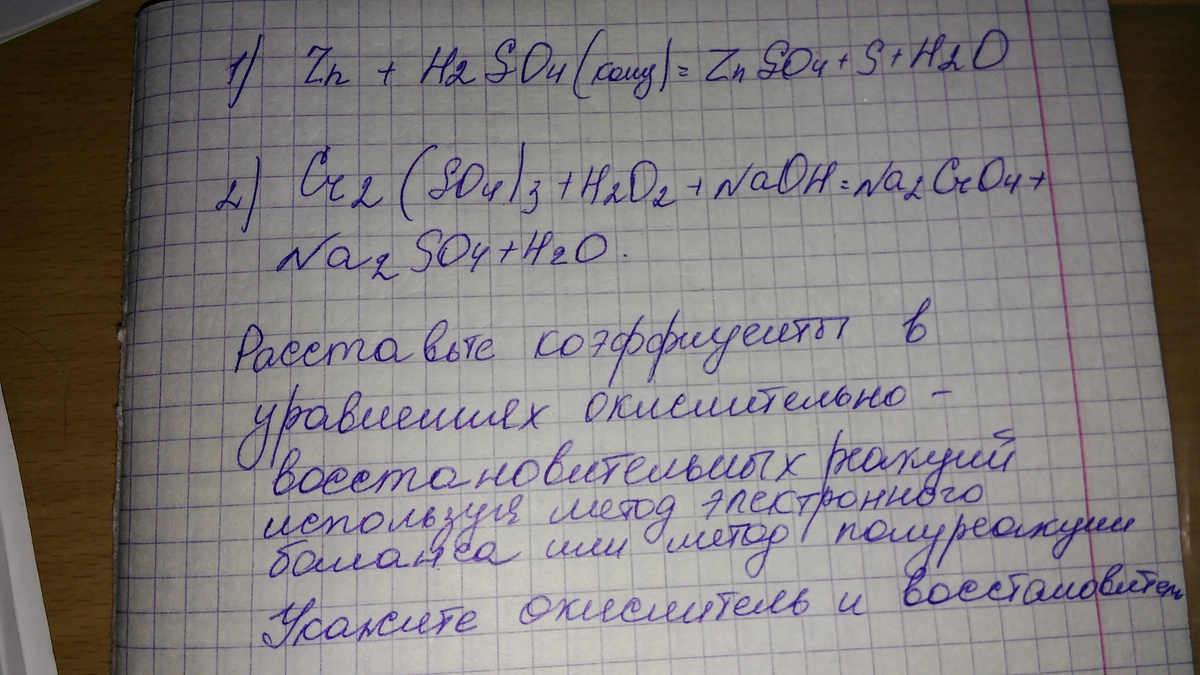 1) Zn + H2SO4(конц) = ZnSO4 + S + H2O
2) Cr2(SO4)3 + H2O2 + NaOH = Na2CrO4 +
Na2SO4 + H2O.
Расставьте коэффициенты в
уравнениях окислительно -
восстановительных реакций
используя метод электронного
баланса или метод полуреакции
Укажите окислитель и восстановитель